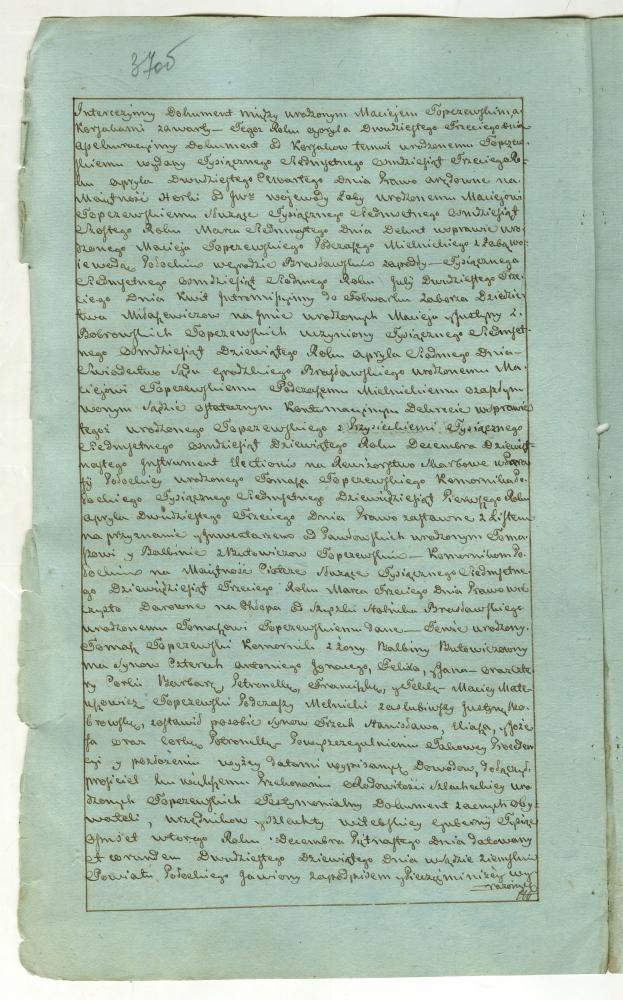 370б
Intercezyiny Dokument między urodzonym Maciejem Topczewskim, a
Korsakami zawarty — Tegoż Roku apryla Dwudziestego Trzeciego dnia
Dokument od Korsakow temuż urodzonemu Topczew-
skiemu wydany Tysiącznego Siedmsetnego osmdziesiąt Trzeciego Ro-
ku apryla Dwudziestego Czwartego Dnia Prawo arędowne na
Maiętność Horki od Jwż wojewody Żaby urodzonemu Maciejowi
Topczewskiemu służące Tysiącznego Siedmsetnego osmdziesiąt
Szostego Roku Marca Siedmnastego Dnia Dekret w sprawie uro-
dzonego Macieja Topczewskiego Podczaszego Mielnickiego z Żabą wo-
iewodą Połockim w grodzie Brasławskim zapadły — Tysiącznego
Siedmsetnego osmdziesiąt Siodmego Roku July Dwudziestego Trze-
ciego Dnia Kwit Intromissyiny do Folwarku Zaborza Dziedzic-
twa Miłaszewiczow na Imie urodzonych Macieja y Justyny z
Bobrowskich Topczewskich uczyniony Tysiącznego Siedmset-
nego osmdziesiąt Dziewiątego Roku apryla Siodmego Dnia —
Swiadectwo Sądu grodzkiego Brasławskiego urodzonemu Ma-
ciejowi Topczewskiemu Podczaszemu Mielnickiemu o zapadym
wonym Sądzie ostatecznym Kontumacyinym Dekrecie w sprawie
tegoż urodzonego Topczewskiego z Przysieckiemi Tysiącznego
Siedmsetnego osmdziesiąt Dziewiątego Roku Decembra Dziewięt-
nastego Instrument Electionis na Rewizorstwo Skarbowe w Para-
fij Połockiey urodzonego Tomasza Topczewskiego Komornika Po-
łockiego Tysiącznego Siedmsetnego Dziewiędziesiąt Pierwszego Roku
apryla Dwudziestego Trzeciego Dnia Prawo zastawne z Listem
na przyznanie y Inwentarzem od Pawłowskich urodzonym Toma-
szowi y Balbinie z Butowiczow Topczewskim — Komornikom Po-
łockim na Maiętność służące Tysiącznego Siedmsetne-
go Dziewiędziesiąt Trzeciego Roku Marca Trzeciego Dnia Prawo wie-
czysto Darowne na Chłopa od Stolnika Brasławskiego
urodzonemu Tomaszowi Topczewskiemu dane — Tenże urodzony
Tomasz Topczewski Komornik z Żony Balbiny Butowiczowny
ma Synow Czterech Antoniego Ignacego, Felixa, y Jana — oraz Czte-
ry Corki Barbarę, Petronellę, Franciszkę, y Teklę — Maciey Mate-
uszowicz Topczewski Podczaszy Melnicki zaslubiwszy Justynę Bo-
browską, zostawił po sobie Synow Trzech Stanisława, Eliasza, y Joze-
fa oraz corkę Petronellę Powyszczegulnieniu Takowey Proceden-
cyi y położeniu wyżey datami wypisanych Dowodow, dołączyli
prosiciel ku większemu Przekonaniu o Rodowitosci Szlacheckiey uro-
dzonych Topczewskich Testymonialny Dokument zacnych oby-
wateli, urzędnikow y szlachty witebskiey guberny Tysiąc
osmset wtorego Roku Decembra Piętnastego Dnia datowany
A w Dwudziestego Dziewiątego Dnia w Sądzie Ziemskim
Powiatu Połockiego Jawiony za podpisem y Pieczęciami niżey wy-
rażonych